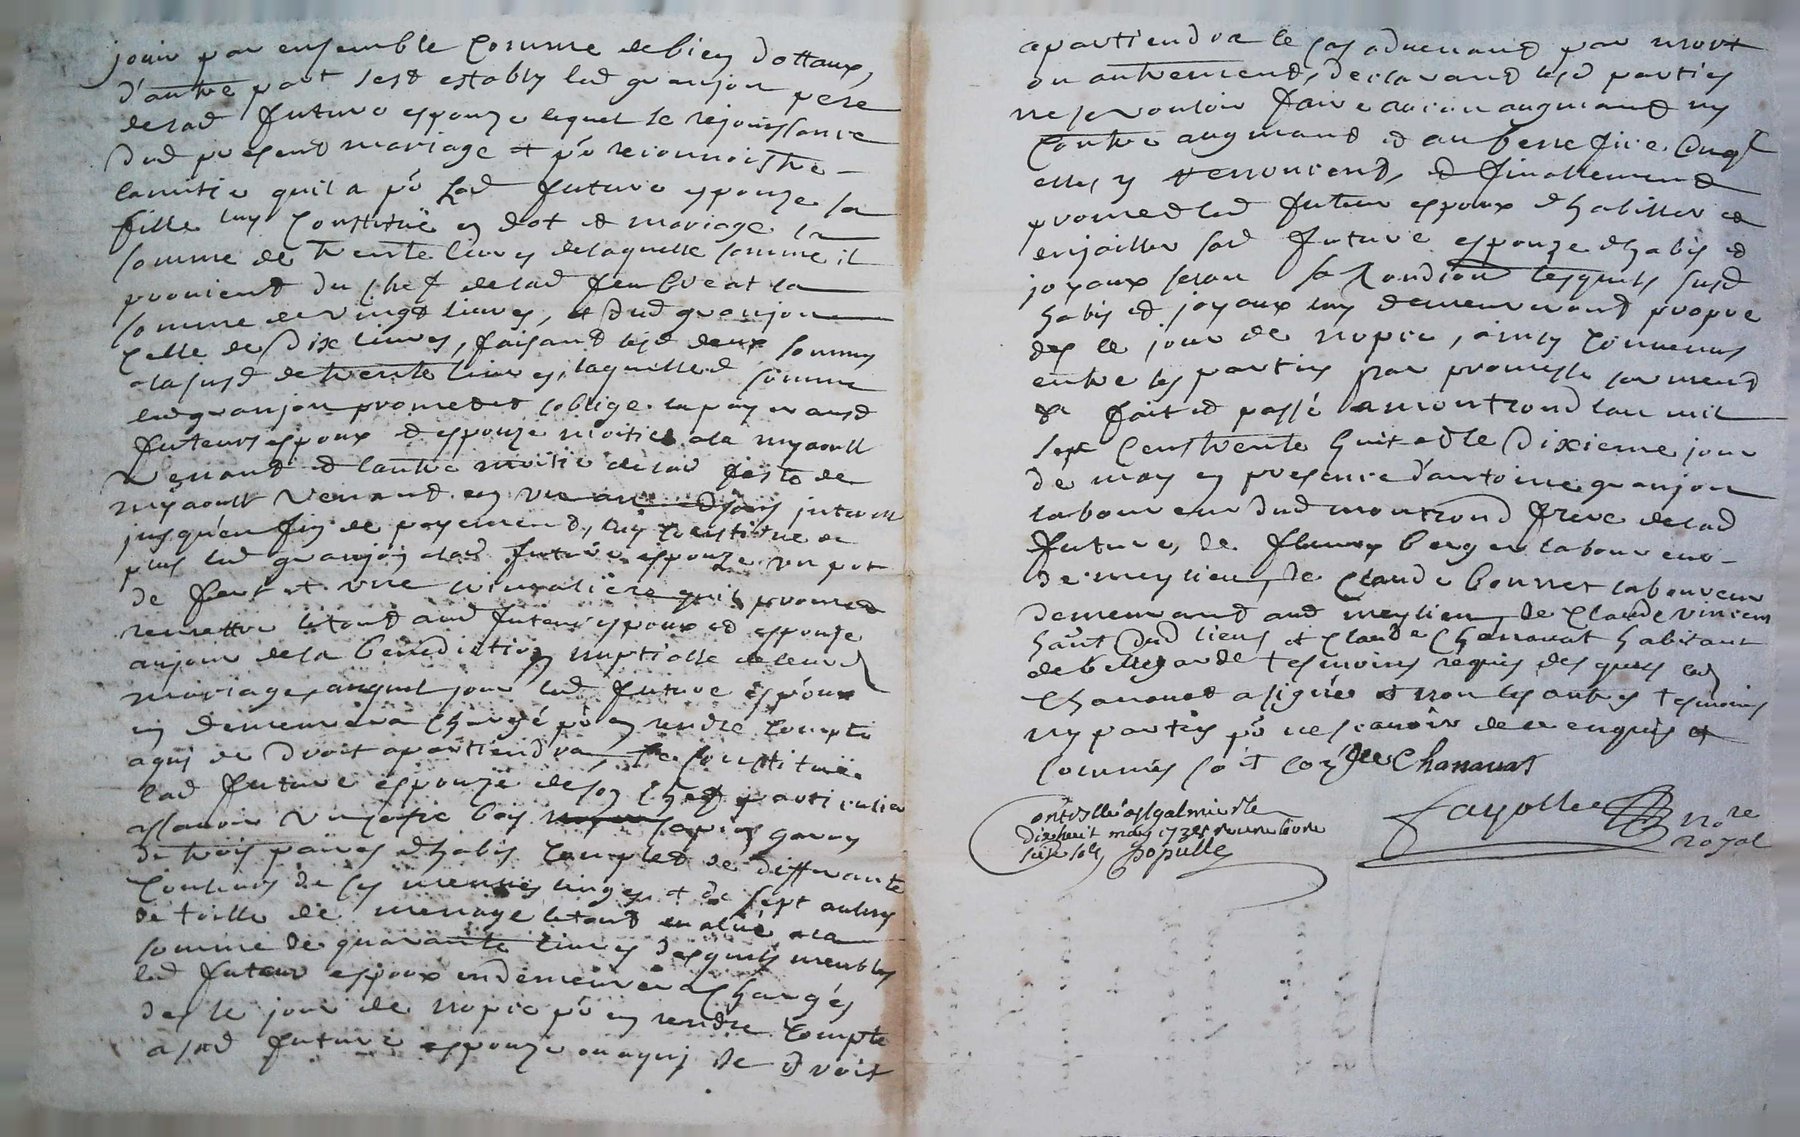 jouir par ensemble comme de bien dottaux,
d'autre part sest estably led granjon pere
de lad future espouze lequel se rejouissance
dud present mariage et po reconnoistre
lamitie quil a po lad future espouze sa
fille luy constitue en dot et mariage la
somme de trente livres de laquelle somme il
provient du chef de lad feu la
somme de vingt livres, et dud granjon
celle de dix livres, faisant lesd deux sommes
lasusd de trente livres, laquelle somme
led granjon promet et soblige la payer ausd
futeurs espoux et espouze moitié a la myaoust
venant et lautre moitié de lad feste de
myaoust venant en un an
jusqu'en fin de payement, luy constitue de
plus led granjon alad future espouze un pot
de fert et une qu'il promet
remettre letout aud futeur espoux et espouze
aujour de la benediction nuptialle de leurd
mariage, auquel jour led future espoux
en demeurera chargé po en rendre compte
aquy de droit apartiendra, se constitue
lad future espouze de son chef particulier
assavoir un bois sapin garny
de trois paires d'habis complet de differante
couleurs de ses menues linges et de sept aulnes
de toille de menage letout evalué ala
somme de quarante livres desquels meubles
led futeur espoux en demeurera chargés
des le jour de nopce po en rendre compte
a sad future espouze ou aquy de droit
apartiendra le cas advenant par mort
ou autrement, declarant lesd parties
ne se vouloir faire aucun augmant ny
contre augmant et au benefice duql
elles y renoncent, et finallement
promet led futeur espoux d'habiller et
enjoiller sad future espouze d'habis et
joyaux selon sa condition lesquels susd
habis et joyaux luy demeureront propre
des le jour de nopce, ainsy convenus
entre les parties par promesse serment
&c fait et passé a montrond lan mil
sept cents trente huit et le dixieme jour
de may en presence d'antoine granjon
laboureur dud montrond frere de lad
future, de fleury berger laboureur
de meylieu, de Claude bonnet laboureur
demeurant aud meylieu, de Claude vincent
hait dud lieu, et Claude Chanavat habitant
de bellegarde tesmoins requis desquels led
Chanavat a signé et non les autres tesmoins
ny parties po ne scavoir de ce enquis et
sommés soit con.lle Chanavat
Controllé a st galmier le
dixhuit may 1738 receu une livre
seize sols Populle
Fayolle nore
royal